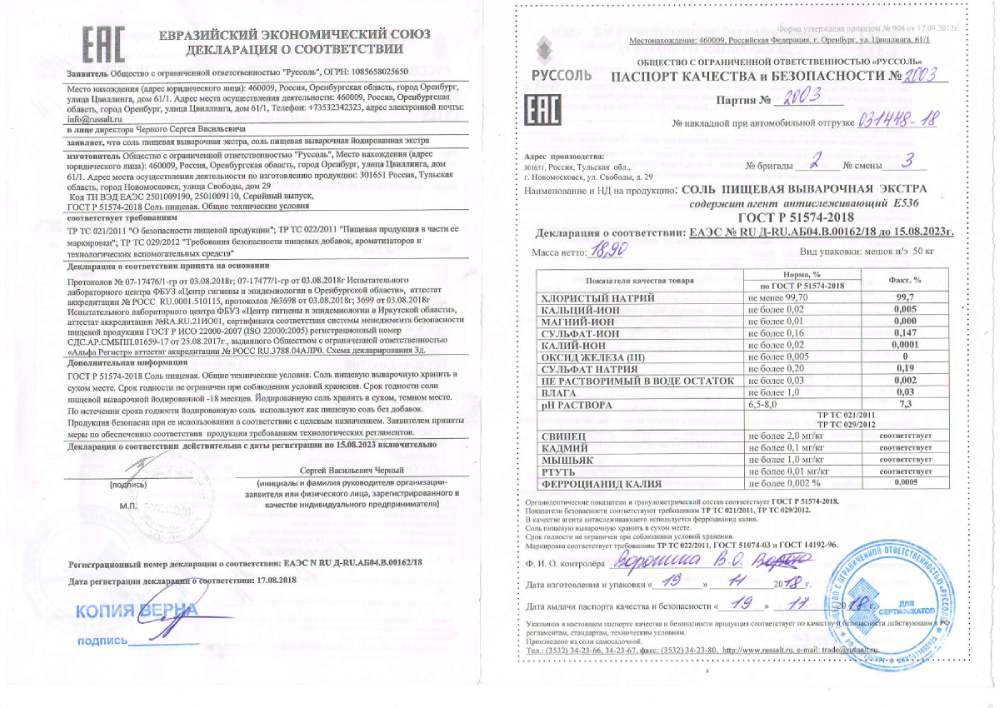 ЕВРАЗИЙСКИЙ ЭКОНОМИЧЕСКИЙ СОЮЗ
ДЕКЛАРАЦИЯ О СООТВЕТСТВИИ
Заявитель Общество с ограниченной ответственностью "Руссоль", ОГРН: 1085658025650
Место нахождения (адрес юридического лица): 460009, Россия, Оренбургская область, город Оренбург,
улица Цвиллинга, дом 61/1. Адрес места осуществления деятельности: 460009, Россия, Оренбургская
область, город Оренбург, улица Цвиллинга, дом 61/1, Телефон: +73532342323, адрес электронной почты:
info@russalt.ru
в лице директора Черного Сергея Васильевича
заявляет, что соль пищевая выварочная экстра, соль пищевая выварочная йодированная экстра
изготовитель Общество с ограниченной ответственностью "Руссоль", Место нахождения (адрес
юридического лица): 460009, Россия, Оренбургская область, город Оренбург, улица Цвиллинга, дом
61/1. Адрес места осуществления деятельности по изготовлению продукции: 301651 Россия, Тульская
область, город Новомосковск, улица Свободы, дом 29
Код ТН ВЭД ЕАЭС 2501009190, 2501009110, Серийный выпуск,
ГОСТ Р 51574-2018 Соль пищевая. Общие технические условия
соответствует требованиям
ТР ТС 021/2011 "О безопасности пищевой продукции"; ТР ТС 022/2011 "Пищевая продукция в части ее
маркировки"; ТР ТС 029/2012 "Требования безопасности пищевых добавок, ароматизаторов и
технологических вспомогательных средств"
Декларация о соответствии принята на основании
Протоколов № 07-17476/1-гр от 03.08.2018г; 07-17477/1-гр от 03.08.2018г Испытательного
лабораторного центра ФБУЗ «Центр гигиены и эпидемиологии в Оренбургской области», аттестат
аккредитации № РОСС RU.0001.510115, протоколов №3698 от 03.08.2018г; 3699 от 03.08.2018г
Испытательного лабораторного центра ФБУЗ «Центр гигиены и эпидемиологии в Иркутской области»,
аттестат аккредитации №RA.RU.21ИО01, сертификата соответствия системы менеджмента безопасности
пищевой продукции ГОСТ Р ИСО 22000-2007 (ISO 22000:2005) регистрационный номер
СДС.АР.СМБПП.01659-17 от 25.08.2017г., выданного Обществом с ограниченной ответственностью
«Альфа Регистр» аттестат аккредитации № РОСС RU.З788.04АЛР0. Схема декларирования 3д.
Дополнительная информация
ГОСТ Р 51574-2018 Соль пищевая. Общие технические условия. Соль пищевую выварочную хранить в
сухом месте. Срок годности не ограничен при соблюдении условий хранения. Срок годности соли
пищевой выварочной йодированной -18 месяцев. Йодированную соль хранить в сухом, темном месте.
По истечении срока годности йодированную соль используют как пищевую соль без добавок.
Продукция безопасна при ее использовании в соответствии с целевым назначением. Заявителем приняты
меры по обеспечению соответствия продукции требованиям технологических регламентов.
Декларация о соответствии действительна с даты регистрации по 15.08.2023 включительно
Сергей Васильевич Черный
(подпись)
(инициалы и фамилия руководителя организации-
заявителя или физического лица, зарегистрированного в
качестве индивидуального предпринимателя)
М.П.
Регистрационный номер декларации о соответствии: ЕАЭС N RU Д-RU.АБ04.В.00162/18
Дата регистрации декларации о соответствии: 17.08.2018
КОПИЯ ВЕРНА
подпись
Форма утверждена приказом № 904 от 17.09.2012г
Местонахождение: 460009, Российская Федерация, г. Оренбург, ул. Цвиллинга, 61/1
РУССОЛЬ
ОБЩЕСТВО С ОГРАНИЧЕННОЙ ОТВЕТСТВЕННОСТЬЮ «РУССОЛЬ»
ПАСПОРТ КАЧЕСТВА и БЕЗОПАСНОСТИ № 2003
Партия № 2003
№ накладной при автомобильной отгрузке 031448-18
Адрес производства:
301651, Россия, Тульская обл.,
г. Новомосковск, ул. Свободы, д. 29
№ бригады 2 № смены 3
Наименование и НД на продукцию: СОЛЬ ПИЩЕВАЯ ВЫВАРОЧНАЯ ЭКСТРА
содержит агент антислеживающий Е536
ГОСТ Р 51574-2018
Декларация о соответствии: ЕАЭС № RU Д-RU.АБ04.В.00162/18 до 15.08.2023г.
Масса нетто: 18,90 Вид упаковки: мешок п/э 50 кг
Показатели качества товара Норма, % по ГОСТ Р 51574-2018 Факт, %
ХЛОРИСТЫЙ НАТРИЙ не менее 99,70 99,7
КАЛЬЦИЙ-ИОН не более 0,02 0,005
МАГНИЙ-ИОН не более 0,01 0,000
СУЛЬФАТ-ИОН не более 0,16 0,147
КАЛИЙ-ИОН не более 0,02 0,0001
ОКСИД ЖЕЛЕЗА (III) не более 0,005 0
СУЛЬФАТ НАТРИЯ не более 0,20 0,19
НЕ РАСТВОРИМЫЙ В ВОДЕ ОСТАТОК не более 0,03 0,002
ВЛАГА не более 1,0 0,03
pH РАСТВОРА 6,5-8,0 7,3
ТР ТС 021/2011
ТР ТС 029/2012
СВИНЕЦ не более 2,0 мг/кг соответствует
КАДМИЙ не более 0,1 мг/кг соответствует
МЫШЬЯК не более 1,0 мг/кг соответствует
РТУТЬ не более 0,01 мг/кг соответствует
ФЕРРОЦИАНИД КАЛИЯ не более 0,002 % 0,0005
Органолептические показатели и гранулометрический состав соответствует ГОСТ Р 51574-2018.
Показатели безопасности соответствуют требованиям ТР ТС 021/2011, ТР ТС 029/2012.
В качестве агента антислеживающего используется ферроцианид калия.
Соль пищевую выварочную хранить в сухом месте.
Срок годности не ограничен при соблюдении условий хранения.
Маркировка соответствует требованиям ТР ТС 022/2011, ГОСТ 51074-03 и ГОСТ 14192-96.
Ф. И. О. контролёра Воронина В.О.
Дата изготовления и упаковки « 19 » 11 2018 г.
Дата выдачи паспорта качества и безопасности « 19 » 11 2018 г.
ДЛЯ
СЕРТИФИКАТОВ
Указанное в настоящем паспорте качества и безопасности продукция соответствует по качеству и безопасности действующим в РФ
регламентам, стандартам, техническим условиям.
Произведено из соли самосадочной.
Тел.: (3532) 34-23-66, 34-23-67, факс: (3532) 34-23-80, http://www.russalt.ru, e-mail: trade@russalt.ru